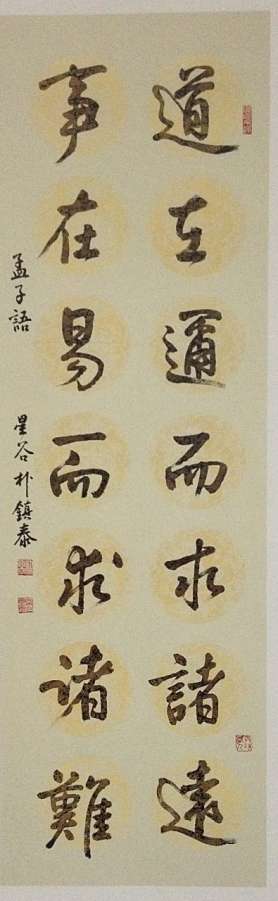 道在邇而求諸遠
事在易而求諸難
孟子語 星谷朴鎭泰